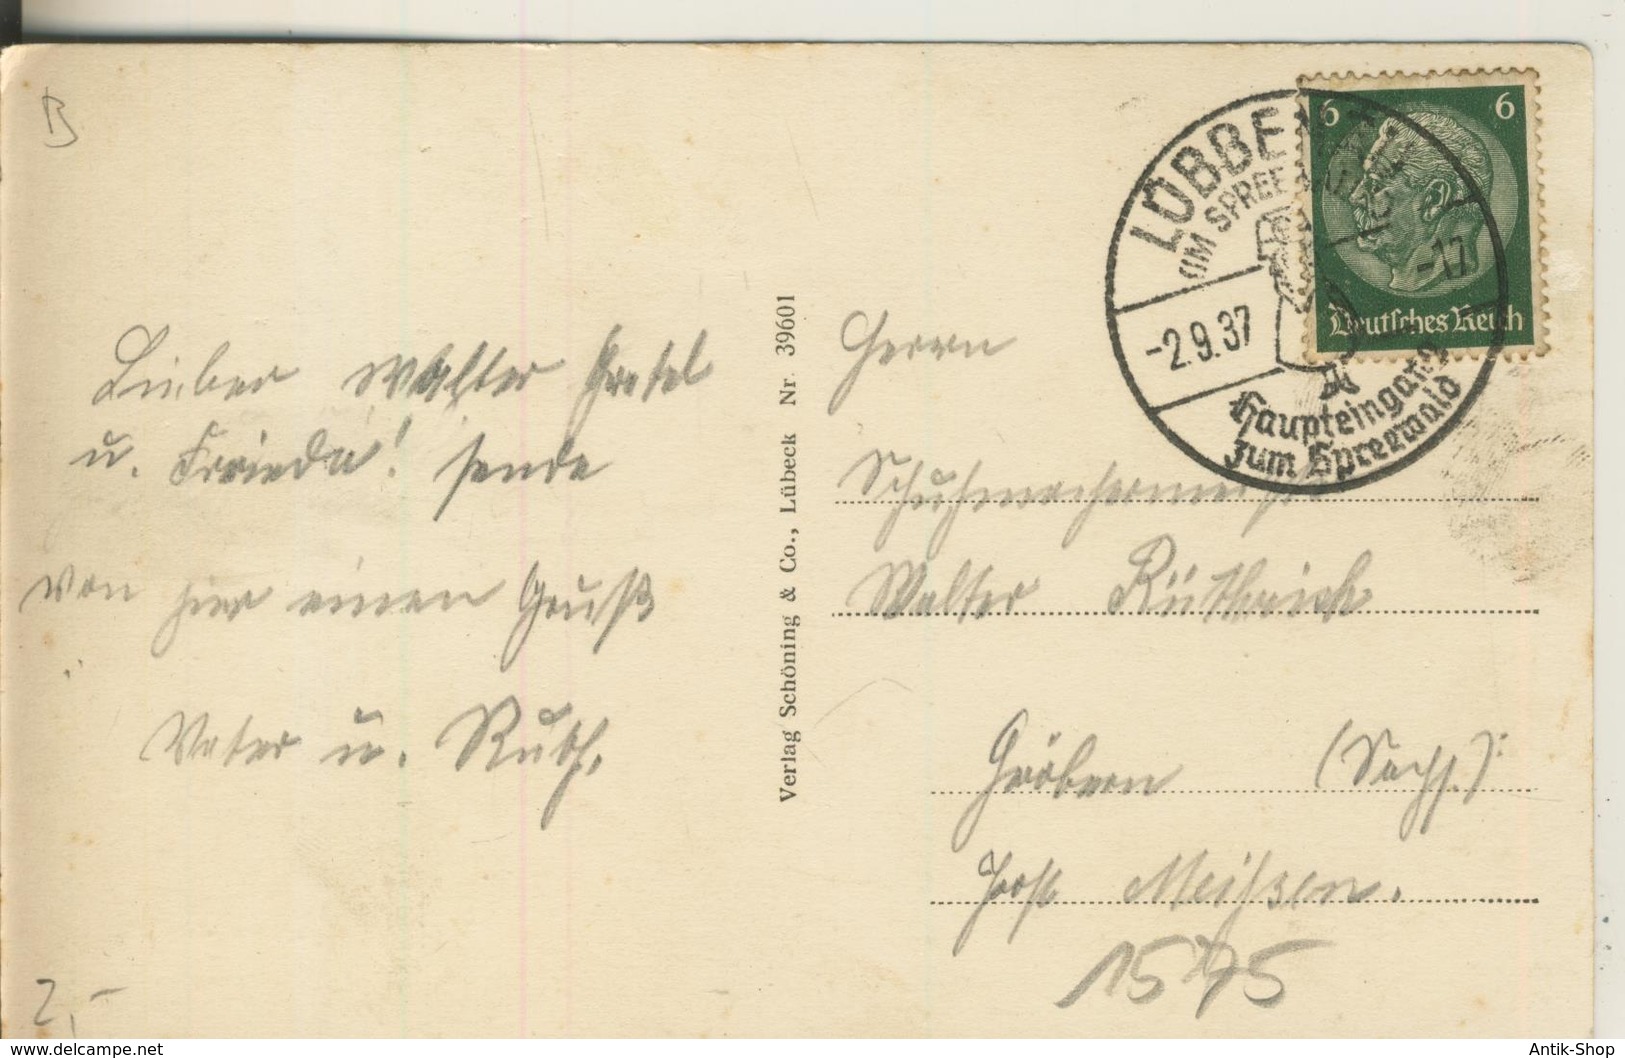 B
Lieber Walter Gretel
u. Frieda! sende
von hier einen Gruß
Vater u. Ruth.
2,-
Verlag Schöning & Co., Lübeck Nr. 39601
6 6
Deutsches Reich
LÜBBEN
IM SPREEWALD
-2.9.37 -17
Haupteingang
zum Spreewald
Herrn
Schuhmachermeister
Walter Rüthrich
Gröbern (Sachs.)
Post Meißen.
1575
www.delcampe.net
Antik-Shop